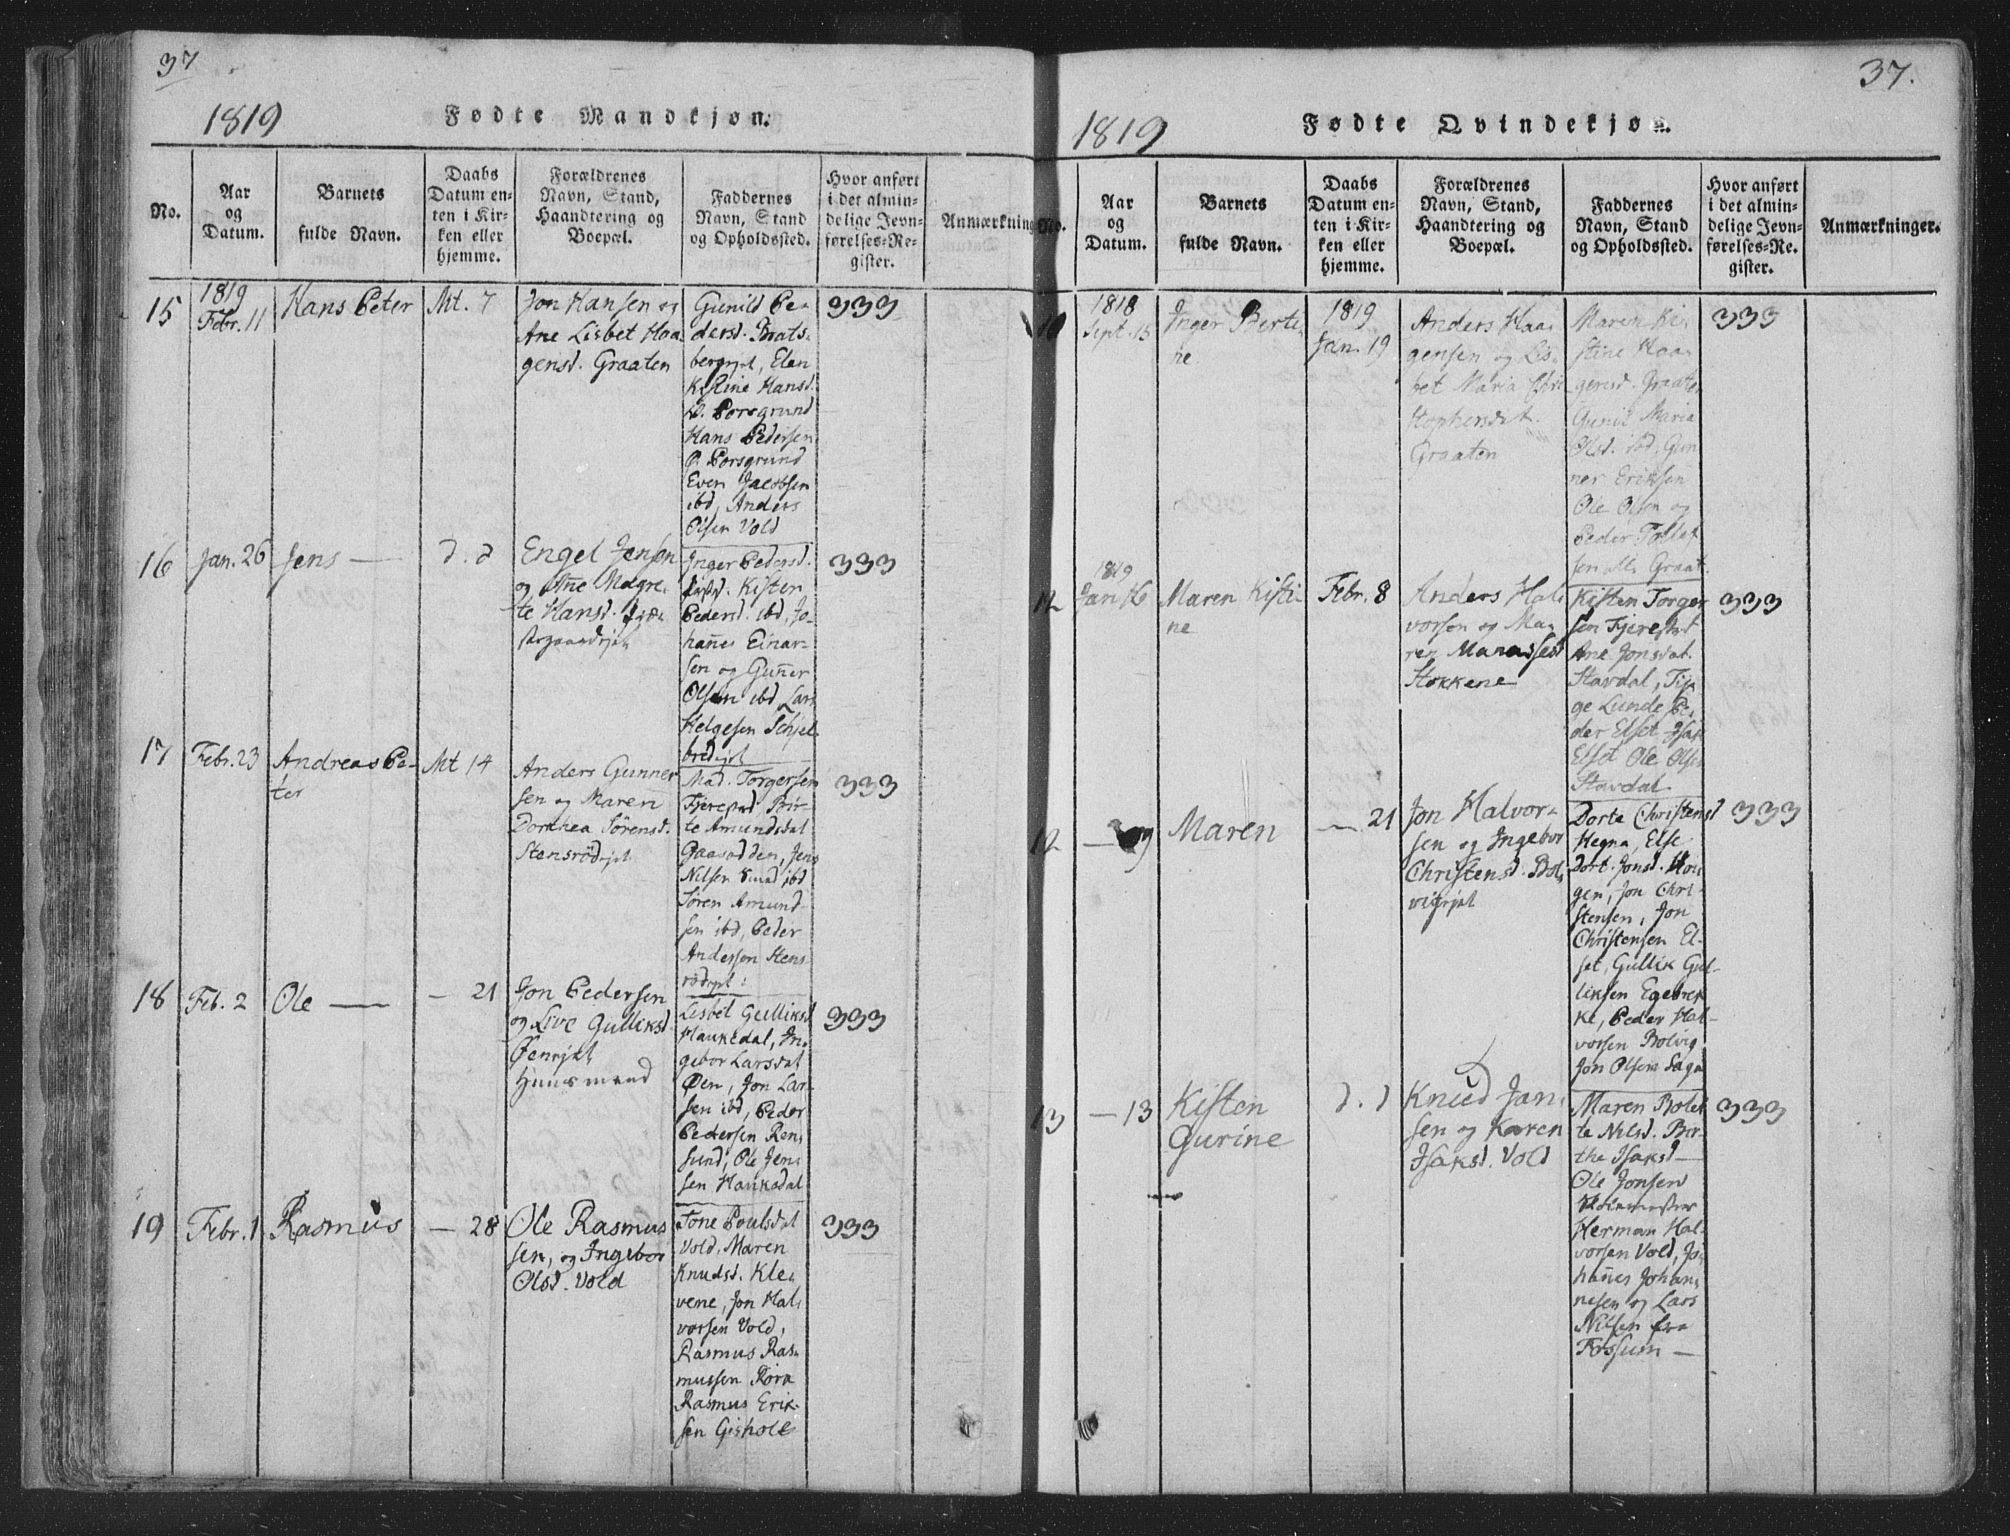 37
1819
Fødte Mandkjøn.
No.
Aar
og
Datum.
Barnets
fulde Navn.
Daabs
Datum en-
ten i Kir-
ken eller
hjemme.
Forældrenes
Navn, Stand,
Haandtering og
Boepæl.
Faddernes
Navn, Stand
og Opholdssted.
Hvor anført
i det almin-
delige Jevn-
førelses-Re-
gister.
Anmærkning
15
1819
Febr. 11
Hans Peter
Mt. 7
Jon Hansen og
Ane Lisbet Haa-
gensd. Graaten
Gunild Pe-
dersd. Brats-
bergejet, Elen
Kistine Hansd.
P. Porsgrund
Hans Pedersen
P. Porsgrund
Even Jacobsen
ibd, Anders
Olsen Vold
333
16
Jan. 26
Jens —
d. d
Engel Jensen
og Añe Margre-
te Hansd.
Inger Pedersd.
Kisten
Pedersd. ibd, Jo-
hañes Einar-
sen og Guñer
Olsen ibd Lars
Helgesen Schjel-
bredejet
333
17
Febr. 23
Andreas Pe-
ter
Mt 14
Anders Gunner
sen og Maren
Dorthea Sörensd.
Stensrödejet
Mad. Torgersen
Fjerestad Bir-
te Amundsdat
Gaasodden, Jens
Nilsen Smed ibd
Sören Amund-
sen ibd, Peder
Andersen Stens
rödejet
333
18
Feb. 2
Ole —
— 21
Jon Pedersen
og Live Gulliksd
Øenejet
Huusmand
Lisbet Gulliksd
Haukedal, In-
gebor Larsdat
Øen, Jon Lar-
sen ibd, Peder
Pedersen Ren-
sund, Ole Jen-
sen Haukedal
333
19
Febr. 1
Rasmus
— 28
Ole Rasmus
sen, og Ingebor
Olsd. Vold
Tone Poulsdat
Vold, Maren
Knudsd. Kle-
vene, Jon Hal-
vorsen Vold,
Rasmus Ras-
mussen Röra
Rasmus Erik-
sen Gisholt
333
37.
1819
Fødte Qvindekjøn.
No.
Aar
og
Datum.
Barnets
fulde Navn.
Daabs
Datum en-
ten i Kir-
ken eller
hjemme.
Forældrenes
Navn, Stand,
Haandtering og
Boepæl.
Faddernes
Navn, Stand
og Opholdssted.
Hvor anført
i det almin-
delige Jevn-
førelses-Re-
gister.
Anmærkninger.
10
1818
Sept. 15
Inger Berti-
ne
1819
Jan. 19
Anders Haa-
gensen og Lis-
bet Maria Chri
stophersdat.
Graaten
Maren Ki-
stine Haa-
gensd. Graaten
Gunil Maria
Olsd. ibd, Gun
ner Eriksen
Ole Olsen og
Peder Tollef
sen alle Graat.
333
12
1819
Jan 16
Maren Kisti-
ne
Febr. 8
Anders Hal-
vorsen og Ma-
ren Manassesd
Stokkene
Kisten Torger
sen Fjerestad
Ane Jonsdat.
Stavdal,
ge Lunde Pe-
der Elset Isak
Elset Ole Olsen
Stavdal
333
12
— 9
Maren
— 21
Jon Halvor-
sen og Ingebor
Christensd. Bol-
vigejet
Dorte Christensd
Hegna, Else
Dort. Jonsd. Hou-
gen, Jon Chri-
stensen, Jon
Christensen El-
set, Gullik Gul-
liksen Egebrek-
ke, Peder Hal-
vorsen Bolvig
Jon Olsen Saga
333
13
— 13
Kisten
Gurine
d. d
Knud Jan-
sen og Karen
Isaksd. Vold
Maren Bolet-
te Nilsd. Ber-
the Isaksd —
Ole Jonsen
Herman Hal-
vorsen Vold, Jo-
hañes Johan-
nesen og Lars
Nilsen fra
Fossum —
333